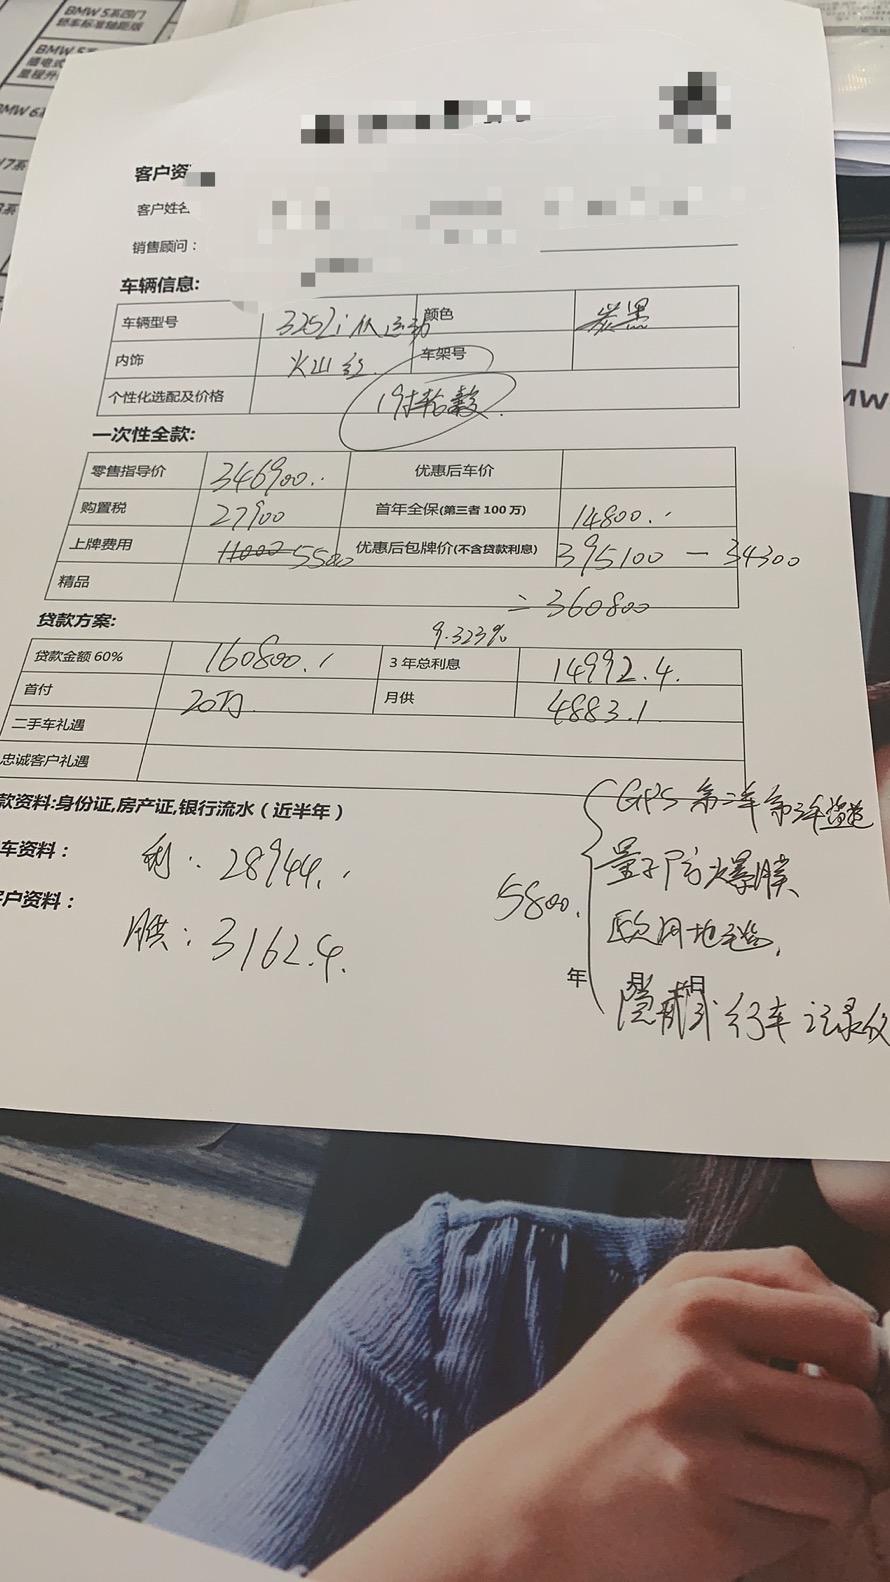 BMW 5系四门
轿车标准轴距版
客户资
客户姓名
销售顾问：
车辆信息:
车辆型号 325Li M运动 颜色 炭黑
内饰 火山红. 车架号
个性化选配及价格 19寸轮毂.
一次性全款:
零售指导价 346900. 优惠后车价
购置税 27900 首年全保(第三者 100 万) 14800.
上牌费用 5500 优惠后包牌价(不含贷款利息) 395100 - 34300
精品 = 360800
贷款方案:
9.323%
贷款金额 60% 160800. 3 年总利息 14992.4.
首付 20万. 月供 4883.1
二手车礼遇
忠诚客户礼遇
款资料:身份证,房产证,银行流水（近半年）
车资料： 利: 28944.
客户资料： 月供: 3162.4.
5800. GPS 第二年 第三年盗抢
量子防爆膜
欧阔地毯,
隐藏式行车记录仪
年 月 日